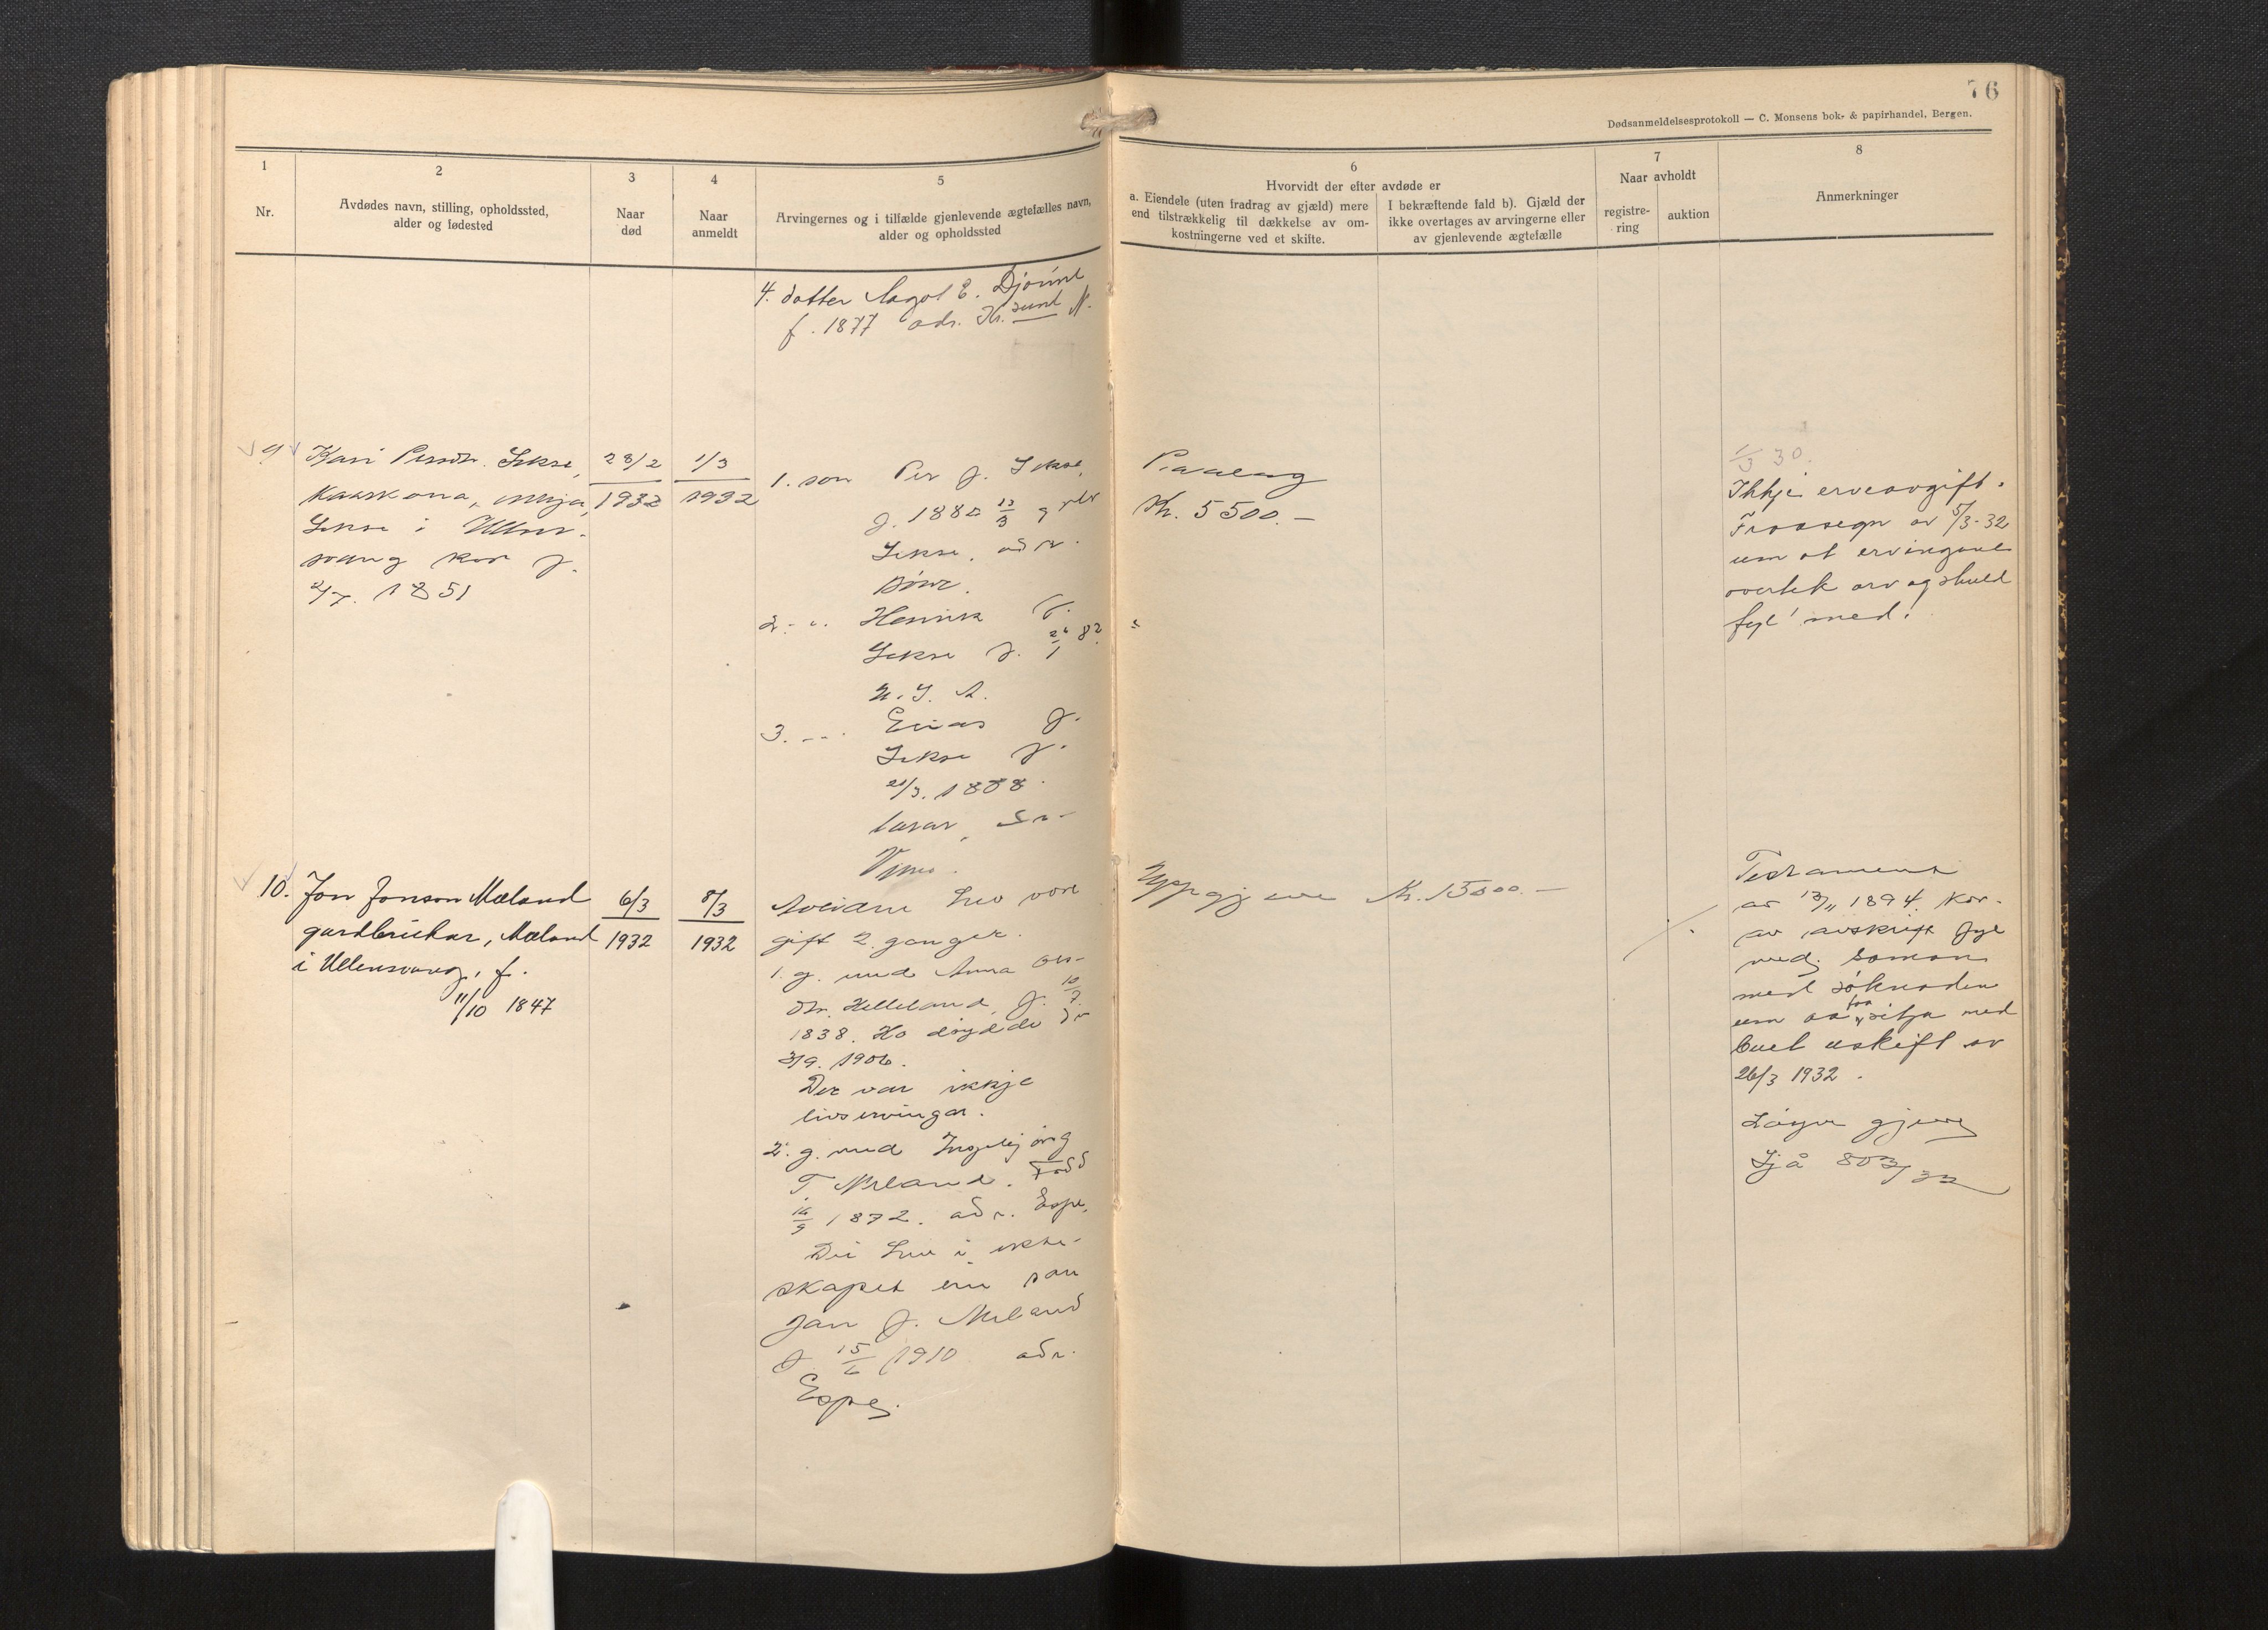 76
Dødsanmeldelsesprotokoll — C. Monsens bok- & papirhandel, Bergen.
1
Nr.
2
Avdødes navn, stilling, opholdssted,
alder og fødested
3
Naar
død
4
Naar
anmeldt
5
Arvingernes og i tilfælde gjenlevende ægtefælles navn,
alder og opholdssted
6
Hvorvidt der efter avdøde er
a. Eiendele (uten fradrag av gjæld) mere
end tilstrækkelig til dækkelse av om-
kostningerne ved et skifte.
I bekræftende fald b). Gjæld der
ikke overtages av arvingerne eller
av gjenlevende ægtefælle
7
Naar avholdt
registre-
ring
auktion
8
Anmerkninger
4. dotter Magol E. Djønne
f. 1877 adr. Kr.sund N.
9
Kari Persdtr. Sekse,
kaarkona, enkja,
Sekse i Ullens-
vang
2/7. 1851
28/2
1932
1/3
1932
1. son Per J. Sekse,
f. 1880 13/3
Sekse, adr.
Børve.
2. " Henrik J.
Sekse f. 26/1 82
U. S. A.
3. " J.
Sekse f.
21/3. 1888
lærar, adr.
Paalag
Kr. 5500.–
1/3 30.
Ikkje erveavgift.
Fraasegn av 5/3-32
um at ervingane
overtek arv og skuld
fyl' med.
10.
Jon Jonson Mæland
gardbrukar, Mæland
i Ullensvang, f.
11/10 1847
6/3
1932
8/3
1932
Avlidne hev vore
gift 2 ganger.
1. g. med Anna
dtr. Helleland, f. 10/7
1838. Ho døydde
3/9. 1906.
Der var ikkje
livservingar.
2. g. med Ingebjørg
T. Mæland. Fødd
16/9 1872. adr. Espe.
Dei hev i ekte-
skapet ein son
Jon J. Mæland
f. 15/6 1910 adr.
Espe.
Uppgjeve Kr. 15000.–
Testament
av 13/11 1894.
av avskrift fyl
med saman
med søknaden
um aa faa sitja med
buet uskift av
26/3 1932.
Sjå 803/32